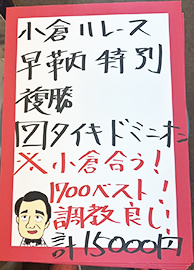 小倉11レース
早鞆特別
複勝
⑫タイキドミニオン
※小倉合う！
1700ベスト！
調教良し！
計15000円